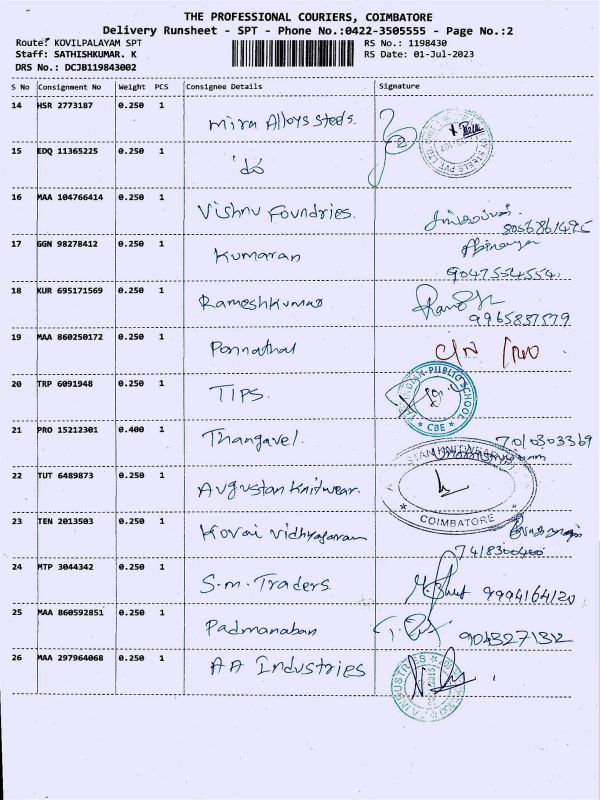 THE PROFESSIONAL COURIERS, COIMBATORE
Delivery Runsheet - SPT - Phone No.:0422-3505555 - Page No.:2
Route: KOVILPALAYAM SPT
RS No.: 1198430
Staff: SATHISHKUMAR. K
RS Date: 01-Jul-2023
DRS No.: DCJB119843002
S No Consignment No Weight PCS Consignee Details Signature
14 HSR 2773187 0.250 1
Mira Alloys Steels.
15 EDQ 11365225 0.250 1
do
16 MAA 104766414 0.250 1
Vishnu Foundries.
17 GGN 98278412 0.250 1
Kumaran
9047554554
18 KUR 695171569 0.250 1
Rameshkumar
9965857579
19 MAA 860250172 0.250 1
Ponnathal
20 TRP 6091948 0.250 1
TIPS.
PUBLIC SCHOOL
* CBE *
21 PRO 15212301 0.400 1
Thangavel.
7010303369
22 TUT 6489873 0.250 1
Augustan Knitwear.
COIMBATORE
23 TEN 2013503 0.250 1
Kovai Vidhyasaram
7418300400
24 MTP 3044342 0.250 1
S.M. Traders.
9994164120
25 MAA 860592851 0.250 1
Padmanaban
9043271312
26 MAA 297964068 0.250 1
AA Industries